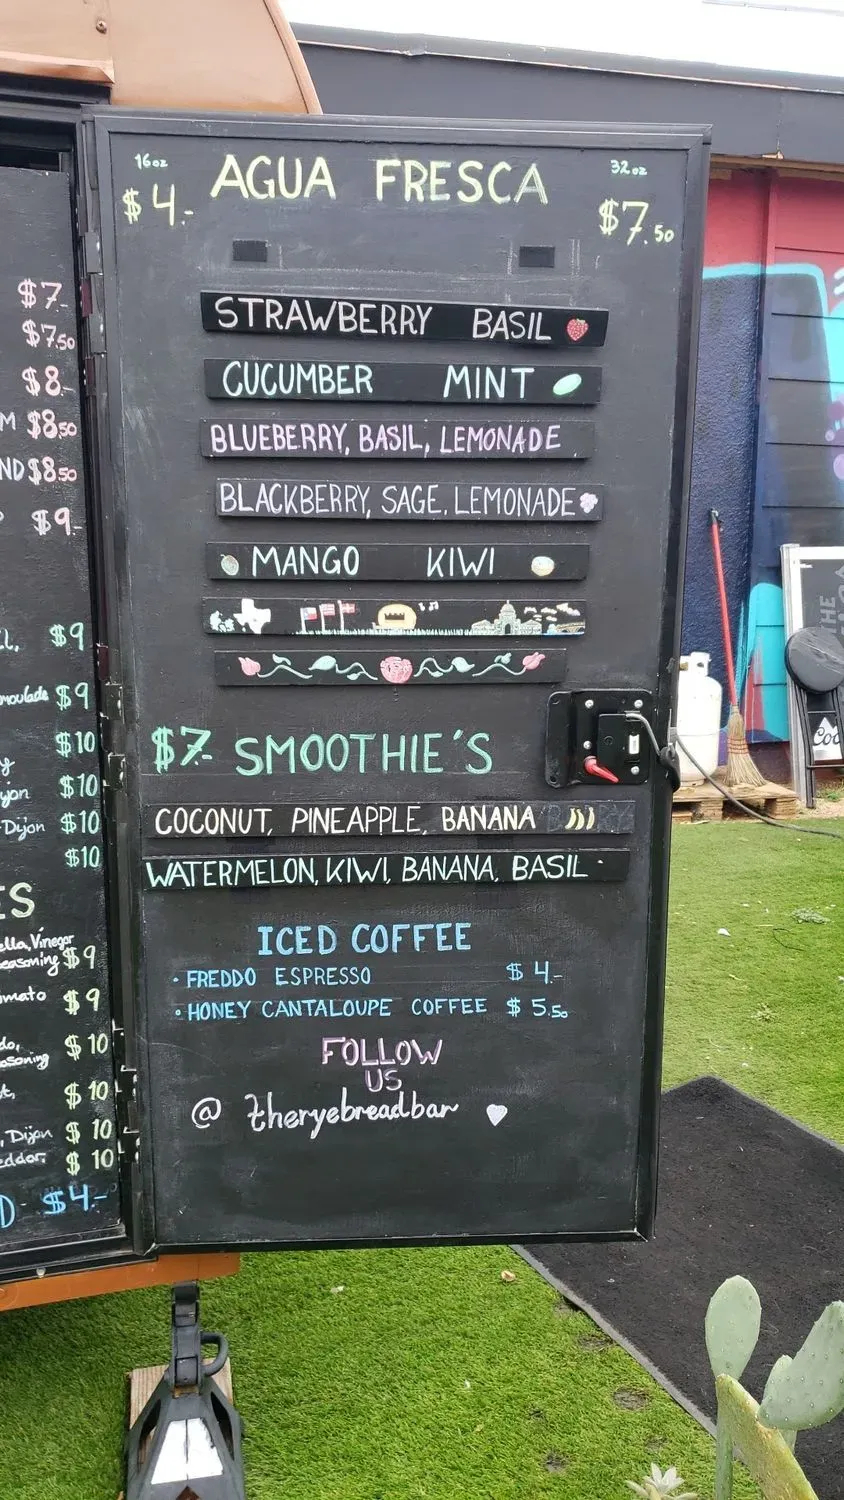 $7-
$7.50
$8-
M $8.50
ND $8.50
$9-
$9
moulade $9
$10
$10
-Dijon $10
$10
ES
ella, Vinegar
easoning $9
omato $9
do,
easoning $10
$10
, Dijon $10
eddar. $10
D $4-
16oz AGUA FRESCA 32oz
$4.- $7.50
STRAWBERRY BASIL
CUCUMBER MINT
BLUEBERRY, BASIL, LEMONADE
BLACKBERRY, SAGE, LEMONADE
MANGO KIWI
$7- SMOOTHIE'S
COCONUT, PINEAPPLE, BANANA
WATERMELON, KIWI, BANANA, BASIL
ICED COFFEE
• FREDDO ESPRESSO $4.-
• HONEY CANTALOUPE COFFEE $5.50
FOLLOW
US
@theryebreadbar
THE